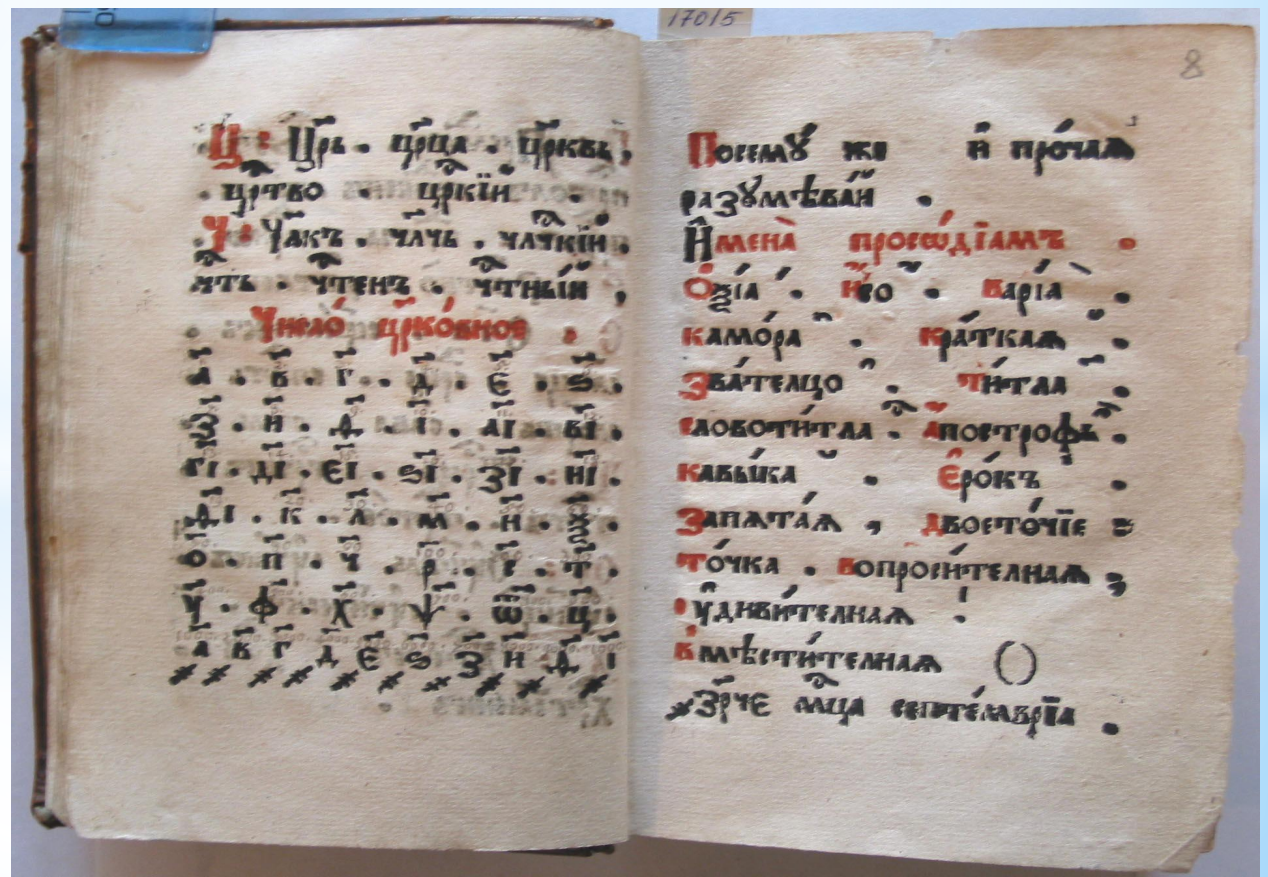 17015
8
Ц: Цр҃ь . цр҃ца . цр҃квь ,
. црⷭ҇тво . црⷭ҇кїи .
Ч: Чл҃къ . чл҃чь . члⷡ҇чкїи .
чⷭ҇ть . чⷭ҇тенъ . чⷭ҇тныи ,
Число́ цр҃ко́вное .
а҃ . в҃ . г҃ . д҃ . є҃ . ѕ҃ .
з҃ . и҃ . ѳ҃ . і҃ . а҃і . в҃і .
г҃і . д҃і . є҃і . ѕ҃і . з҃і . и҃і .
ѳ҃і . к҃ . л҃ . м҃ . н҃ . ѯ҃ .
о҃ . п҃ . ч҃ . р҃ . с҃ . т҃ .
у҃ . ф҃ . х҃ . ѱ҃ . ѿ҃ . ц҃ .
а҃ в҃ г҃ д҃ є҃ ѕ҃ з҃ и҃ ѳ҃ і҃
Посемꙋ́ же и҆ про́чаѧ
разꙋмѣва́й .
И҆мена̀ просѡ́дїамъ .
О҆ѯі́а . и҆́со . варі́а .
камо́ра . кра́ткаѧ .
Зва́телцо . ти́тла .
словоти́тла . а҆по́строфъ .
кавы́ка . Є҆ро́къ .
Запѧта́ѧ , двоето́чїе :
то́чка . вопроси́телнаѧ ;
ᲂу҆диви́телнаѧ !
вмѣсти́телнаѧ ()
Зр҃че мцⷭ҇а септе́мврїа .